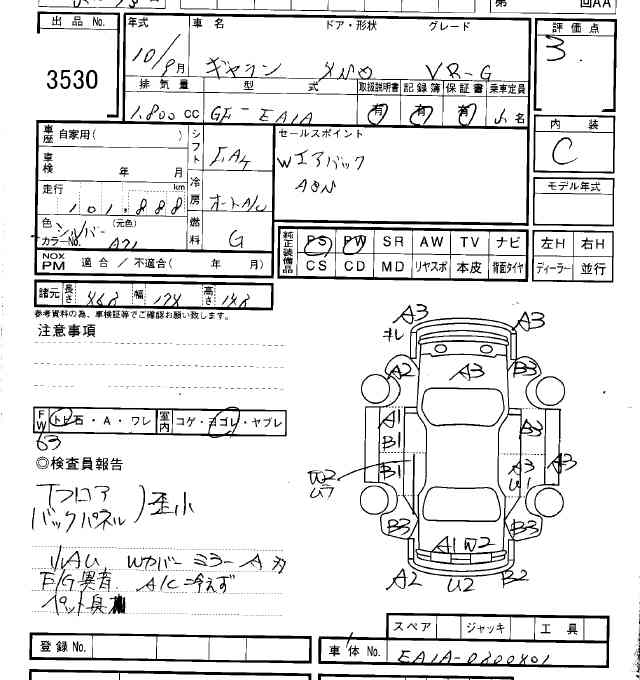 第 回AA
出品No. 年式 車名 ドア・形状 グレード 評価点
3530 10/9月 ギャラン VR-G 3.
排気量 型式 取扱説明書 記録簿 保証書 乗車定員
1,800cc GF-EA1A 有 有 有 名
内装
C
車歴 自家用( ) シフト セールスポイント
車検 年 月 冷房 オートA/C Wエアバッグ
走行 km
101,888
モデル年式
色 シルバー (元色) 燃料 G
カラーNo. A21
純正装備品 PS PW SR AW TV ナビ 左H 右H
CS CD MD リヤスポ 本皮 背面タイヤ ディーラー 並行
NOX PM 適合 / 不適合( 年 月)
諸元 長さ 468 幅 174 高さ 148
参考資料の為、車検証等でご確認お願い致します。
注意事項
A3 A3
キレ
A2 A3 B3
FW トビ石・A・ワレ 室内 コゲ・ヨゴレ・ヤブレ
63
A1 B3
B1
◎検査員報告
B1 A3 A3
W2 U1
Tフロア
バックパネル 歪小
B3 B3
A1 W2
Wカバー ミラーA
E/G異音 A/C冷えず
ペット臭
A2 U2 B2
スペア ジャッキ 工具
登録No. 車体No. EA1A-0800801